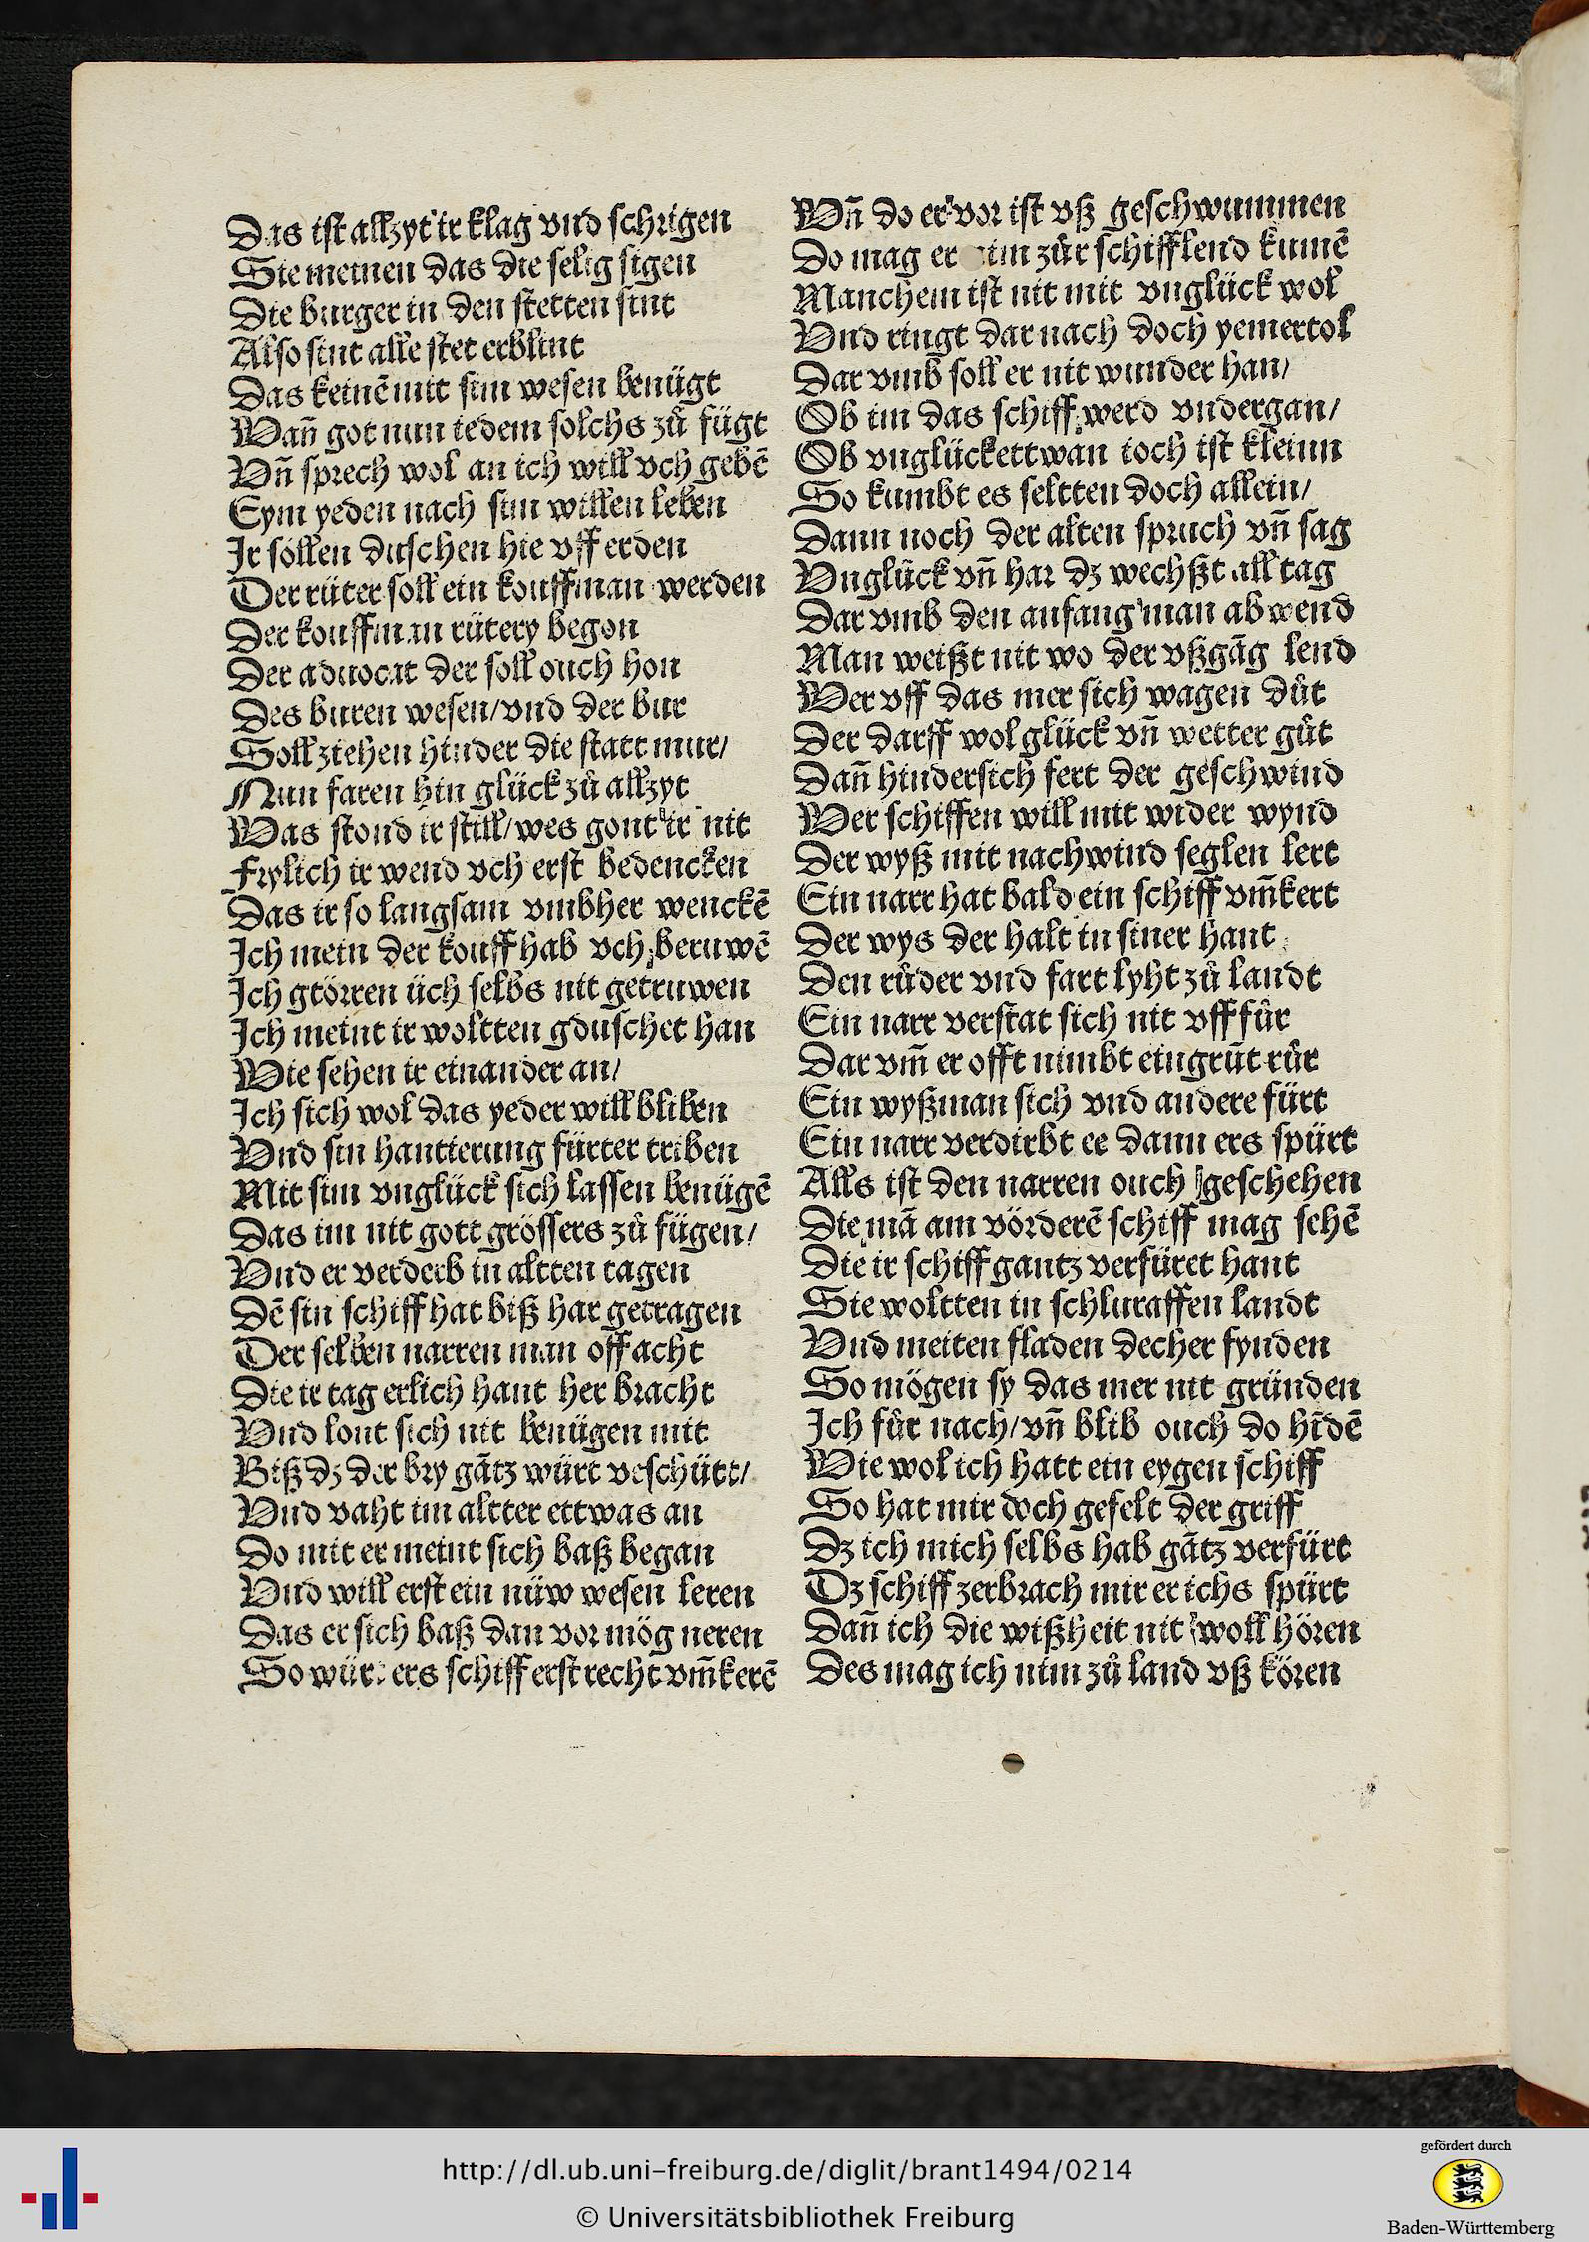 Das ist allzyt ir klag vnd schrigen
Sie meinen das die selig sigen
Die burger in den stetten sint
Also sint alle stet erblint
Das keinē mit sim wesen benügt
Wañ got nun iedem solchs zů fügt
Vñ sprech wol an ich will vch gebē
Eym yeden nach sim willen leben
Ir söllen duschen hie vff erden
Der rüter soll ein kouffman werden
Der kouffman rütery begon
Der aduocat der soll ouch hon
Des buren wesen/vnd der bur
Soll ziehen hinder die statt mur/
Nun faren hin glück zů allzyt
Was stond ir still/wes gont ir nit
Frylich ir wend vch erst bedencken
Das ir so langsam vmbher wenckē
Ich mein der kouff hab vch beruwē
Ich gtörren üch selbs nit getruwen
Ich meint ir woltten gduschet han
Wie sehen ir einander an/
Ich sich wol das yeder will bliben
Vnd sin hantierung fürter triben
Mit sim vnglück sich lassen benügē
Das im nit gott grössers zů fügen/
Vnd er verderb in altten tagen
Dē sin schiff hat biß har getragen
Der selben narren man off acht
Die ir tag erlich hant her bracht
Vnd lont sich nit benügen mit
Biß dz der bry gātz würt veschütt/
Vnd vaht im altter ettwas an
Do mit er meint sich baß began
Vnd will erst ein nüw wesen leren
Das er sich baß dan vor mög neren
So würt ers schiff erst recht vm̄kerē
Wñ do er vor ist vß geschwummen
Do mag er nim zůr schifflend kumē
Manchem ist nit mit vnglück wol
Vnd ringt dar nach doch yemertol
Dar vmb soll er nit wunder han/
Ob im das schiff werd vndergan/
Ob vnglück ettwan ioch ist kleinn
So kumbt es seltten doch allein/
Dann noch der alten spruch vñ sag
Vnglück vñ har dz wechßt all tag
Dar vmb den anfang man ab wend
Man weißt nit wo der vßgāg lend
Wer vff das mer sich wagen důt
Der darff wol glück vñ wetter gůt
Dañ hindersich fert der geschwind
Wer schiffen will mit wider wynd
Der wyß mit nachwind seglen lert
Ein narr hat bald ein schiff vm̄kert
Der wys der halt in siner hant
Den růder vnd fart lyht zů landt
Ein narr verstat sich nit vff fůr
Dar vm̄ er offt nimbt ein grūt růr
Ein wyßman sich vnd andere fürt
Ein narr verdirbt ee dann ers spürt
Alls ist den narren ouch geschehen
Die mā am vörderē schiff mag sehē
Die ir schiff gantz verfüret hant
Sie woltten in schluraffen landt
Vnd meiten fladen decher fynden
So mögen sy das mer nit gründen
Ich fůr nach/vñ blib ouch do hīdē
Wie wol ich hatt ein eygen schiff
So hat mir doch gefelt der griff
Dz ich mich selbs hab gātz verfürt
Dz schiff zerbrach mir er ichs spürt
Dañ ich die wißheit nit woll hören
Des mag ich nim zů land vß kören
http://dl.ub.uni-freiburg.de/diglit/brant1494/0214
© Universitätsbibliothek Freiburg
gefördert durch
Baden-Württemberg